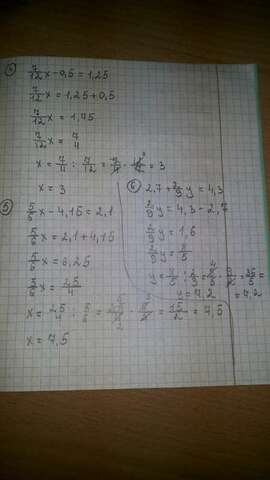 4
7/12 x - 0,5 = 1,25
7/12 x = 1,25 + 0,5
7/12 x = 1,75
7/12 x = 7/4
x = 7/4 : 7/12 = 7/4 · 12/7 = 3
x = 3
5
5/6 x - 4,15 = 2,1
5/6 x = 2,1 + 4,15
5/6 x = 6,25
5/6 x = 25/4
x = 25/4 : 5/6 = 25/4 · 6/5 = 15/2 = 7,5
x = 7,5
6
2,7 + 2/9 y = 4,3
2/9 y = 4,3 - 2,7
2/9 y = 1,6
2/9 y = 8/5
y = 8/5 : 2/9 = 8/5 · 9/2 = 36/5 =
= 7,2
y = 7,2